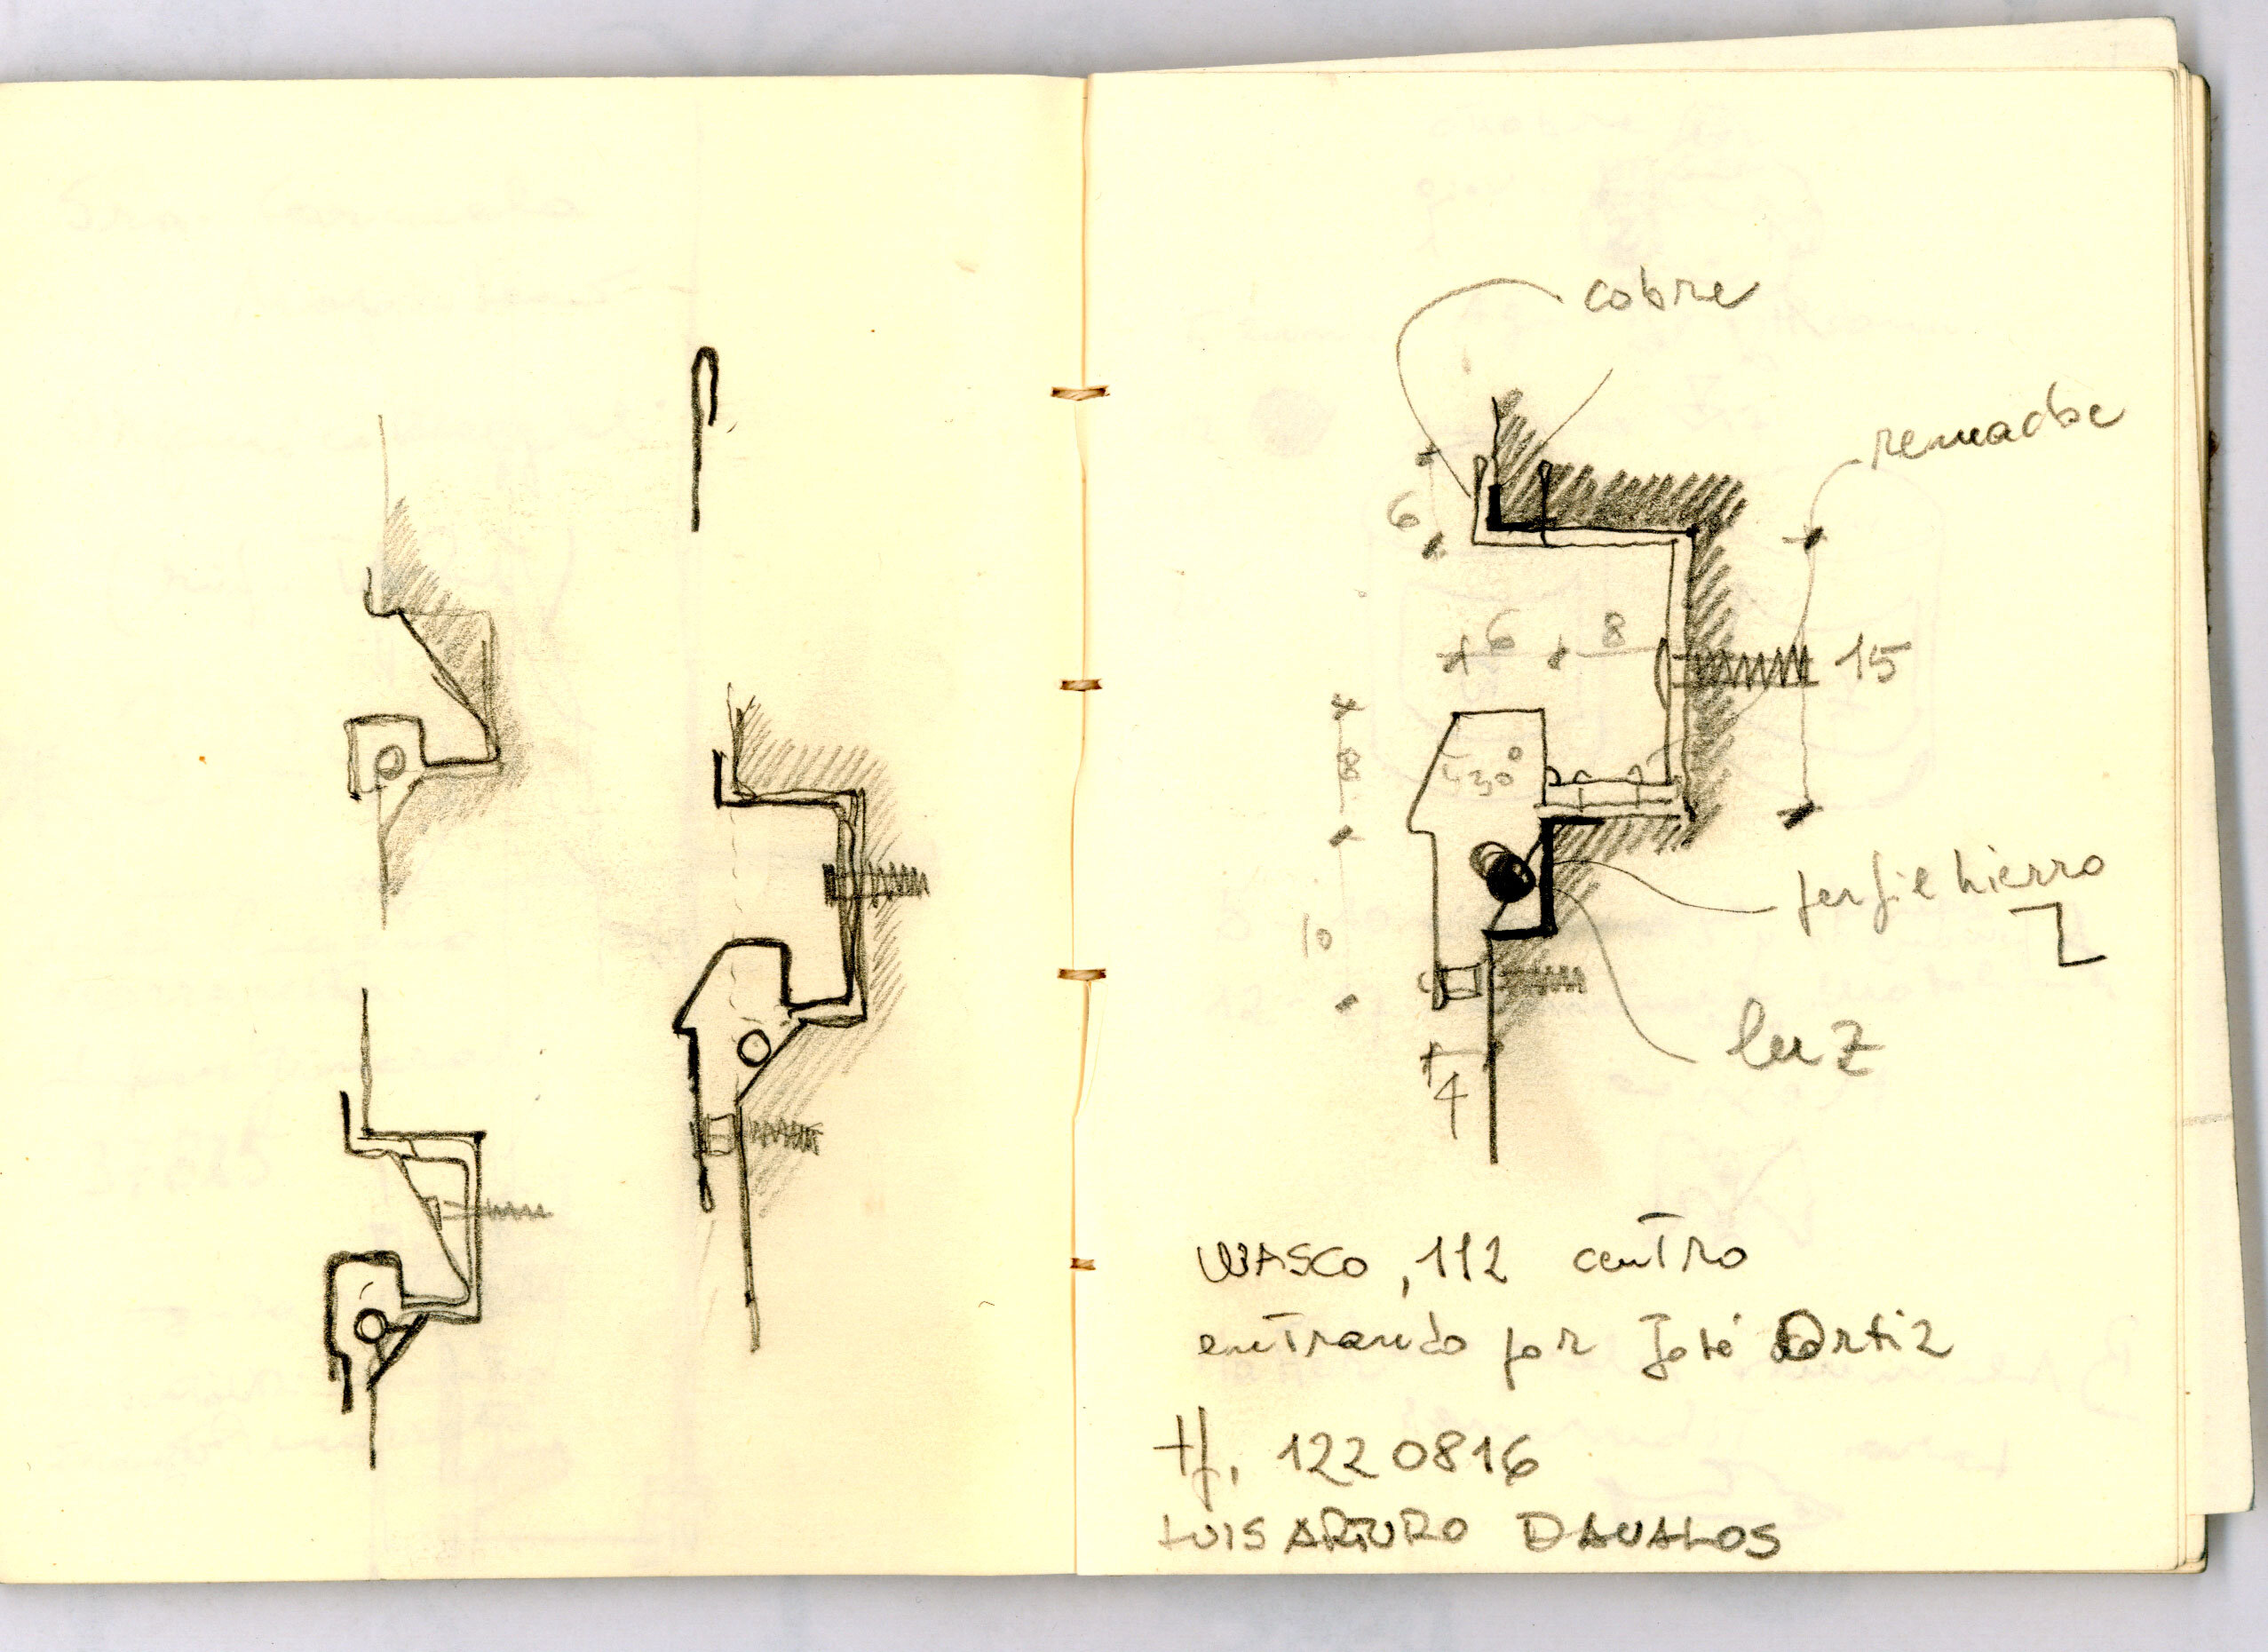 cobre
remache
6
6
8
15
8
30°
perfil hierro
10
luz
4
112 centro
entrando por José Ortiz
tf. 1220816
LUIS ARTURO DAVALOS